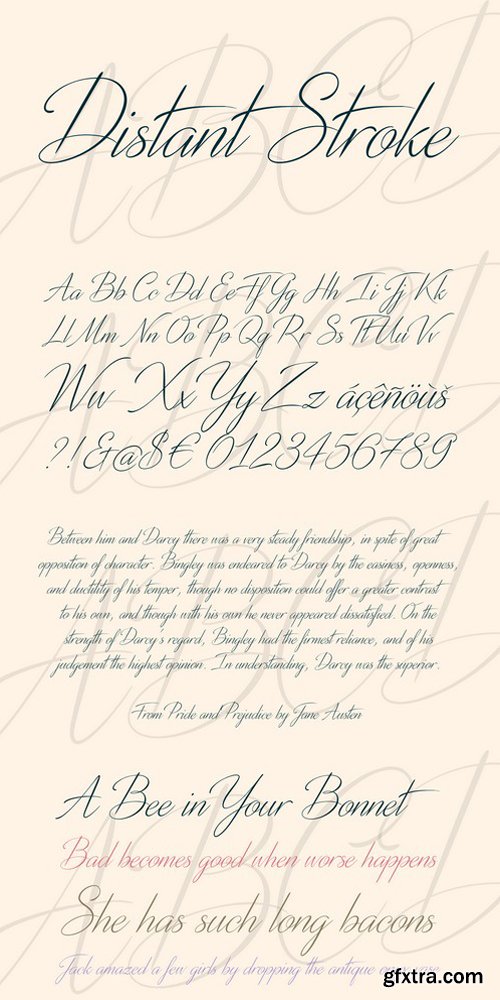 Distant Stroke
Aa Bb Cc Dd Ee Ff Gg Hh Ii Jj Kk
Ll Mm Nn Oo Pp Qq Rr Ss Tt Uu Vv
Ww Xx Yy Zz áçêñöùš
?!&@$€ 0123456789
Between him and Darcy there was a very steady friendship, in spite of great
opposition of character. Bingley was endeared to Darcy by the easiness, openness,
and ductility of his temper, though no disposition could offer a greater contrast
to his own, and though with his own he never appeared dissatisfied. On the
strength of Darcy's regard, Bingley had the firmest reliance, and of his
judgement the highest opinion. In understanding, Darcy was the superior.
From Pride and Prejudice by Jane Austen
A Bee in Your Bonnet
Bad becomes good when worse happens
She has such long bacons
Jack amazed a few girls by dropping the antique
gfxtra.com
ABCD
ABCD
ABCD
ABCD